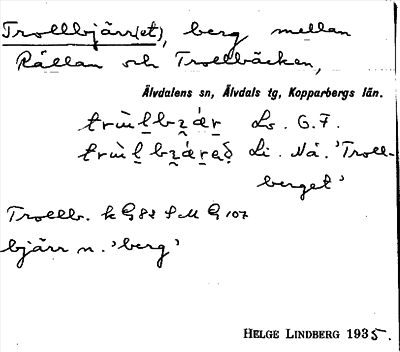 Trollbjärr(et), berg mellan
Rällan och Trollbäcken,
Älvdalens sn, Älvdals tg, Kopparbergs län.
trùl̠bz̯ár̠ Ls. G.F.
trùl̠bz̯ár̠əð̠ Li. Nå. 'Troll-
berget'
Trollb. k G 82 SM G 107
bjärr n. 'berg'
HELGE LINDBERG 1935.